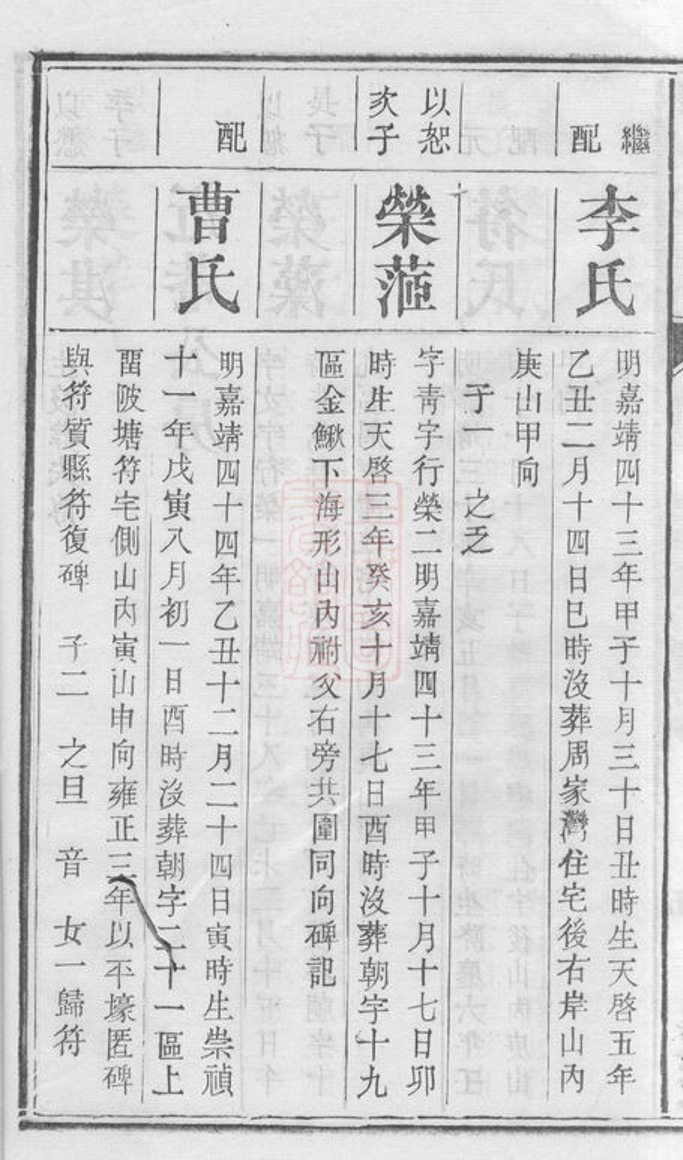 繼
配
李氏
明嘉靖四十三年甲子十月三十日丑時生天啓五年
乙丑二月十四日巳時沒葬周家灣住宅後右岸山內
庚山甲向
子一　之乏
以恕
次子
榮蒞
字靑字行榮二明嘉靖四十三年甲子十月十七日卯
時生天啓三年癸亥十月十七日酉時沒葬朝字十九
區金鰍下海形山內祔父右旁共圍同向碑記
配
曹氏
明嘉靖四十四年乙丑十二月二十四日寅時生崇禎
十一年戊寅八月初一日酉時沒葬朝字二十一區上
畱陂塘符宅側山內寅山申向雍正三年以平壕匿碑
與符質縣符復碑　子二　之旦　音　女一歸符